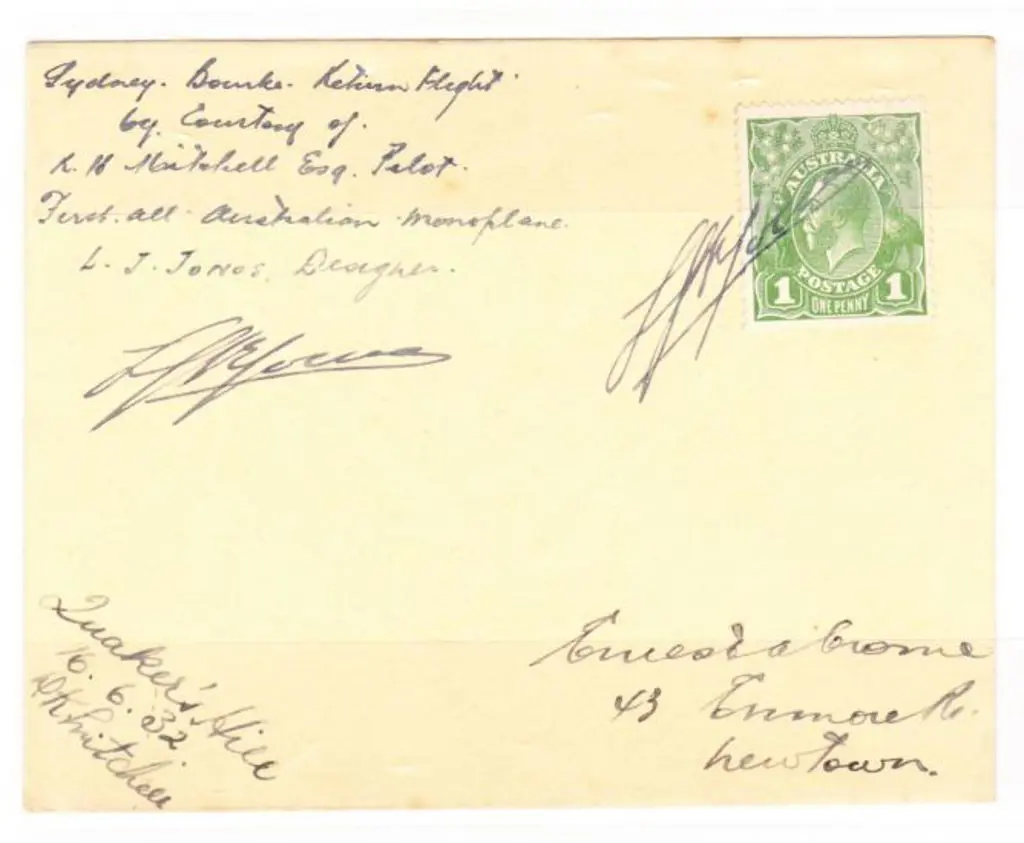 Sydney. Bourke. Return Flight
by Courtesy of.
Mitchell Esq. Pilot.
First. all. Australian monoplane.
L. J. Jones. Designer.
AUSTRALIA
POSTAGE
1 ONE PENNY 1
Quaker's Hill
16. 6. 32.
Mitchell
Ernest A Crome
43 Enmore R.
newTown.